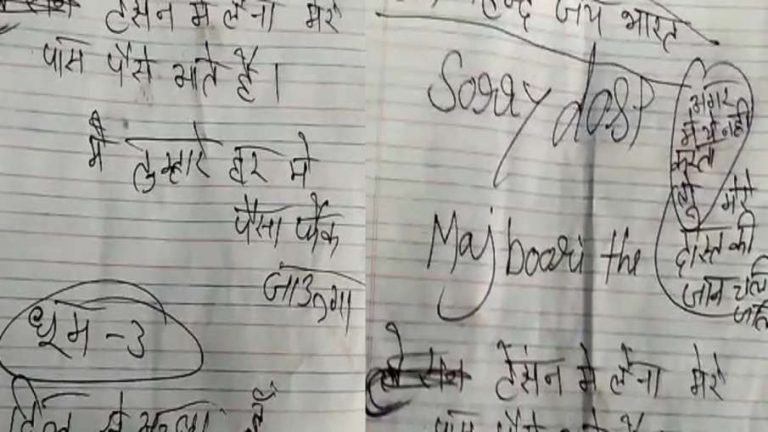 टेंसन मे लेना मेरे
पास पैसे आते है।
मै तुम्हारे घर मे
पैसा फेंक
जाउंगा
धूम-3
जय भारत
Soray dosP
Majboori the
अगर
मे ये नही
करता
तो मेरे
दोस्त की
जान चलि
जाति
टेसंन मे लेना मेरे